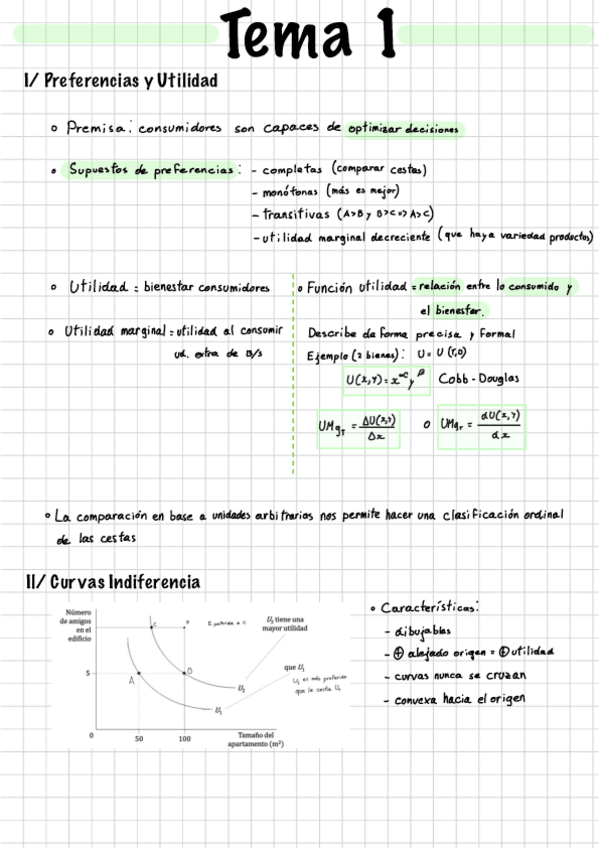 Tema 1
I/ Preferencias y Utilidad
◦ Premisa: consumidores son capaces de optimizar decisiones
◦ Supuestos de preferencias: - completas (comparar cestas)
- monótonas (más es mejor)
- transitivas (A>B y B>C => A>C)
- utilidad marginal decreciente (que haya variedad productos)
◦ Utilidad = bienestar consumidores
◦ Utilidad marginal = utilidad al consumir
ud. extra de B/s
◦ Función utilidad = relación entre lo consumido y
el bienestar.
Describe de forma precisa y formal
Ejemplo (2 bienes): U = U (T,O)
U(x,y) = x^α y^β Cobb - Douglas
UMg_T = ΔU(x,y) / Δx o UMg_T = dU(x,y) / dx
◦ La comparación en base a unidades arbitrarias nos permite hacer una clasificación ordinal
de las cestas
II/ Curvas Indiferencia
Número
de amigos
en el
edificio
5
0
50
100
Tamaño del
apartamento (m²)
A
B
C
E
E preferida a C
U₂ tiene una
mayor utilidad
que U₁
U₂ es más preferida
que la cesta U₁
U₂
U₁
◦ Características:
- dibujables
- ⊕ alejado origen = ⊕ utilidad
- curvas nunca se cruzan
- convexa hacia el origen